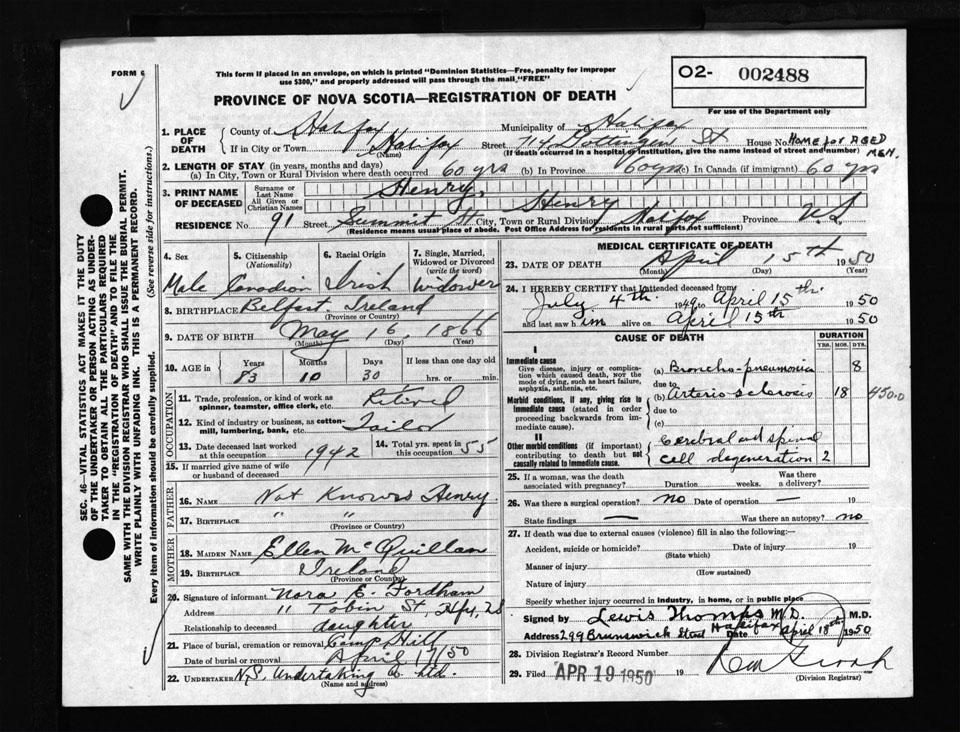 FORM 6
This form if placed in an envelope, on which is printed "Dominion Statistics—Free, penalty for improper
use $300," and properly addressed will pass through the mail, "FREE"
PROVINCE OF NOVA SCOTIA—REGISTRATION OF DEATH
O2- 002488
For use of the Department only
SEC. 46—VITAL STATISTICS ACT MAKES IT THE DUTY
OF THE UNDERTAKER OR PERSON ACTING AS UNDER-
TAKER TO OBTAIN ALL THE PARTICULARS REQUIRED
IN THE "REGISTRATION OF DEATH" AND TO FILE THE
SAME WITH THE DIVISION REGISTRAR WHO SHALL ISSUE THE BURIAL PERMIT.
WRITE PLAINLY WITH UNFADING INK. THIS IS A PERMANENT RECORD.
Every item of information should be carefully supplied. (See reverse side for instructions.)
1. PLACE OF DEATH County of Halifax Municipality of Halifax
If in City or Town Halifax (Name) Street 714 Gottingen St House No. HOME for AGED MEN.
(If death occurred in a hospital or institution, give the name instead of street and number)
2. LENGTH OF STAY (in years, months and days)
(a) In City, Town or Rural Division where death occurred 60 yrs (b) In Province 60 yrs (c) In Canada (if immigrant) 60 yrs
3. PRINT NAME OF DECEASED Surname or Last Name Henry,
All Given or Christian Names Henry
RESIDENCE No. 91 Street Summit St City, Town or Rural Division Halifax Province N.S.
(Residence means usual place of abode. Post Office Address for residents in rural parts not sufficient)
4. Sex 5. Citizenship (Nationality) 6. Racial Origin 7. Single, Married, Widowed or Divorced (write the word)
Male Canadian Irish Widower
8. BIRTHPLACE Belfast, Ireland
(Province or Country)
9. DATE OF BIRTH May 16, 1866
(Month) (Day) (Year)
10. AGE in Years Months Days If less than one day old
83 10 30 hrs. or min.
OCCUPATION
11. Trade, profession, or kind of work as spinner, teamster, office clerk, etc. Retired
12. Kind of industry or business, as cotton-mill, lumbering, bank, etc. Tailor
13. Date deceased last worked at this occupation 1942 14. Total yrs. spent in this occupation 55
15. If married give name of wife or husband of deceased
FATHER
16. Name Not Known Henry
17. Birthplace " "
(Province or Country)
MOTHER
18. Maiden Name Ellen McQuillan
19. Birthplace Ireland
(Province or Country)
20. Signature of informant Nora E. Fordham
Address 11 Tobin St, Hfx, NS
Relationship to deceased daughter
21. Place of burial, cremation or removal Camp Hill
Date of burial or removal April 17/50
22. UNDERTAKER N.S. Undertaking Co. Ltd.
(Name and address)
MEDICAL CERTIFICATE OF DEATH
23. DATE OF DEATH April 15th 1950
(Month) (Day) (Year)
24. I HEREBY CERTIFY that I attended deceased from
July 4th 1949 to April 15th 1950
and last saw him alive on April 15th 1950
CAUSE OF DEATH DURATION
YRS. MOS. DYS.
I
Immediate cause
Give disease, injury or complication which caused death, not the mode of dying, such as heart failure, asphyxia, asthenia, etc.
(a) Broncho-pneumonia 8
due to
Morbid conditions, if any, giving rise to immediate cause (stated in order proceeding backwards from immediate cause).
(b) Arterio-sclerosis 18 450.0
due to
(c)
II
Other morbid conditions (if important) contributing to death but not causally related to immediate cause.
Cerebral and spinal
cell degeneration 2
25. If a woman, was the death associated with pregnancy? Duration weeks. Was there a delivery?
26. Was there a surgical operation? no Date of operation — 19
State findings — Was there an autopsy? no
27. If death was due to external causes (violence) fill in also the following:—
Accident, suicide or homicide? Date of injury 19
(State which)
Manner of injury
(How sustained)
Nature of injury
Specify whether injury occurred in industry, in home, or in public place
Signed by Lewis Thomas M.D. M.D.
Address 299 Brunswick Street Halifax Date April 18th 1950
28. Division Registrar's Record Number
29. Filed APR 19 1950 19
(Division Registrar)